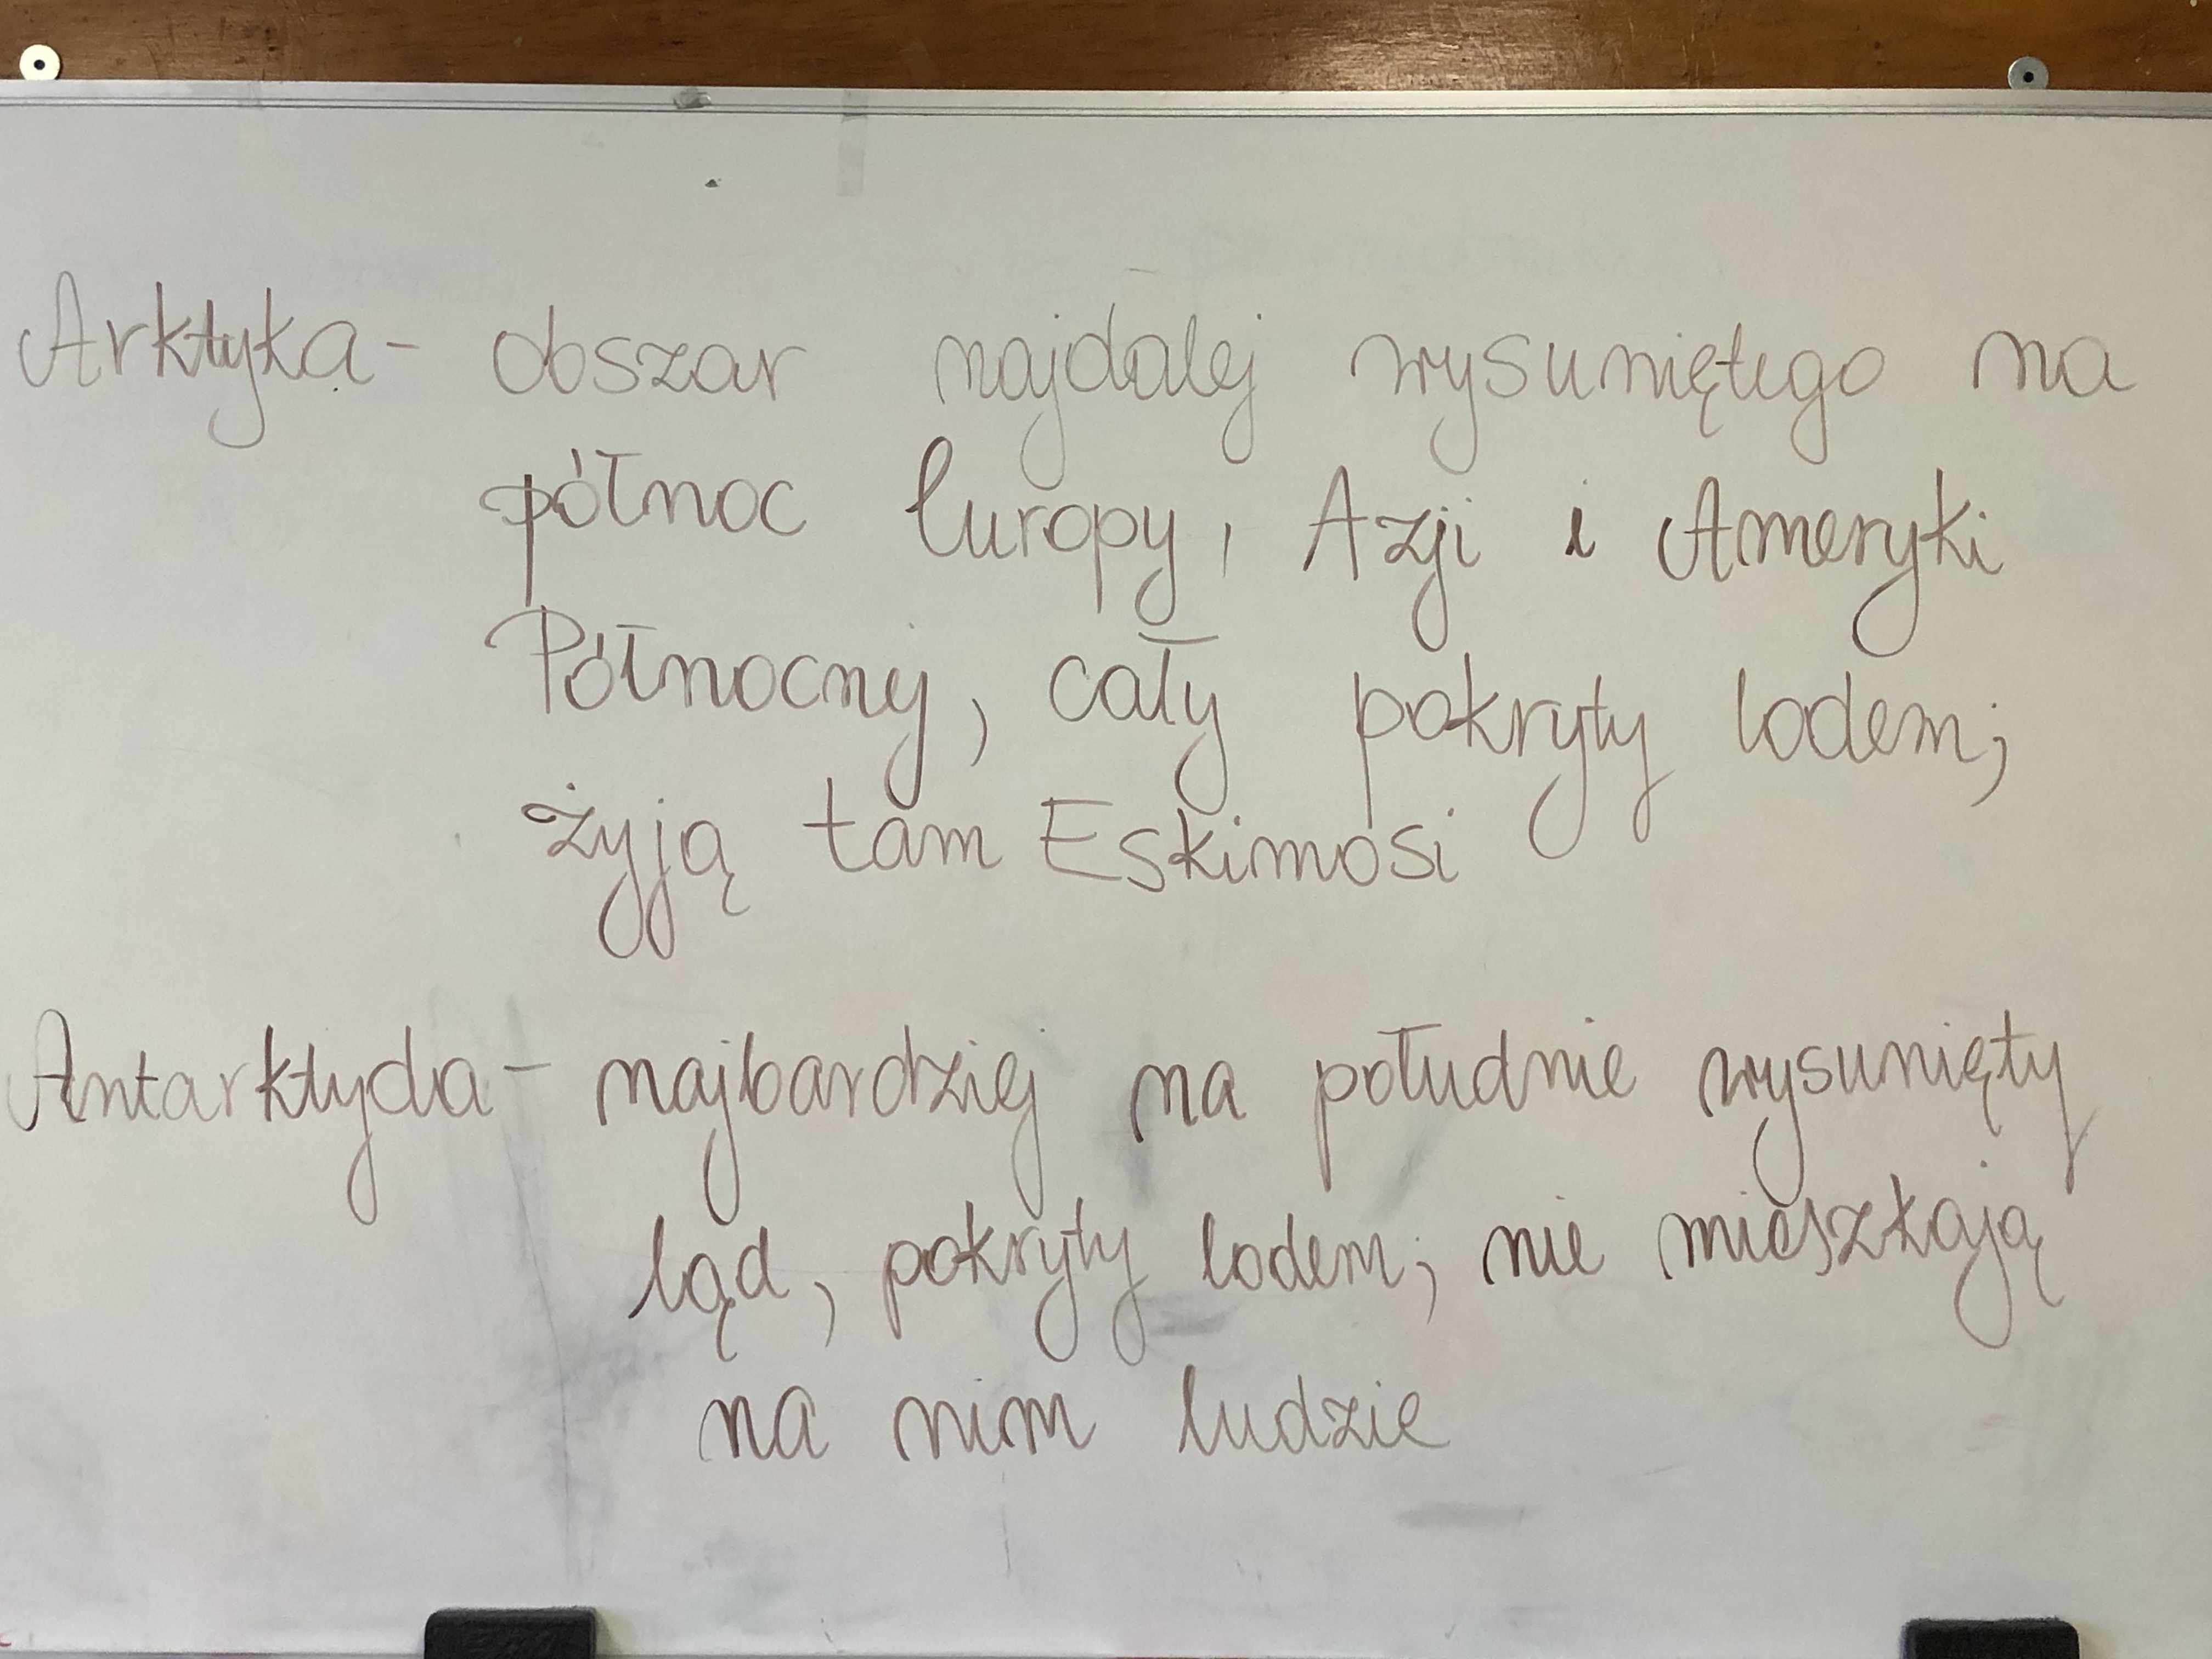 Arktyka - obszar najdalej wysuniętego na
północ Europy, Azji i Ameryki
Północnej, cały pokryty lodem;
żyją tam Eskimosi
Antarktyda - najbardziej na południe wysunięty
ląd, pokryty lodem; nie mieszkają
na nim ludzie